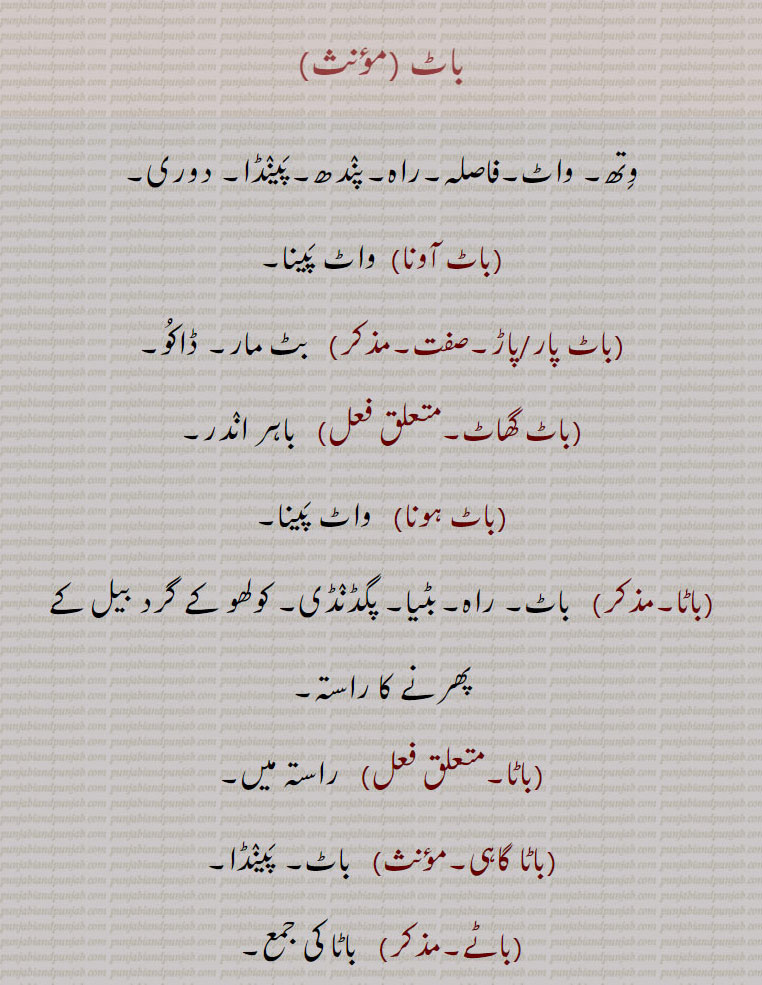 باٹ (مؤنث)
وِتھ۔ واٹ۔فاصلہ۔راہ۔پنْدھ۔پَینْڈا۔ دوری۔
(باٹ آونا) واٹ پَینا۔
(باٹ پار/پاڑ۔صفت۔مذکر) بٹ مار۔ ڈاکُو۔
(باٹ گھاٹ۔متعلق فعل) باہر انْدر۔
(باٹ ہونا) واٹ پَینا۔
(باٹا۔مذکر) باٹ۔ راہ۔بٹیا۔پگڈنْڈی۔ کولھو کے گرد بیل کے
پھرنے کا راستہ۔
(باٹا۔متعلق فعل) راستہ میں۔
(باٹا گاہی۔مؤنث) باٹ۔ پَینْڈا۔
(باٹے۔مذکر) باٹا کی جمع۔